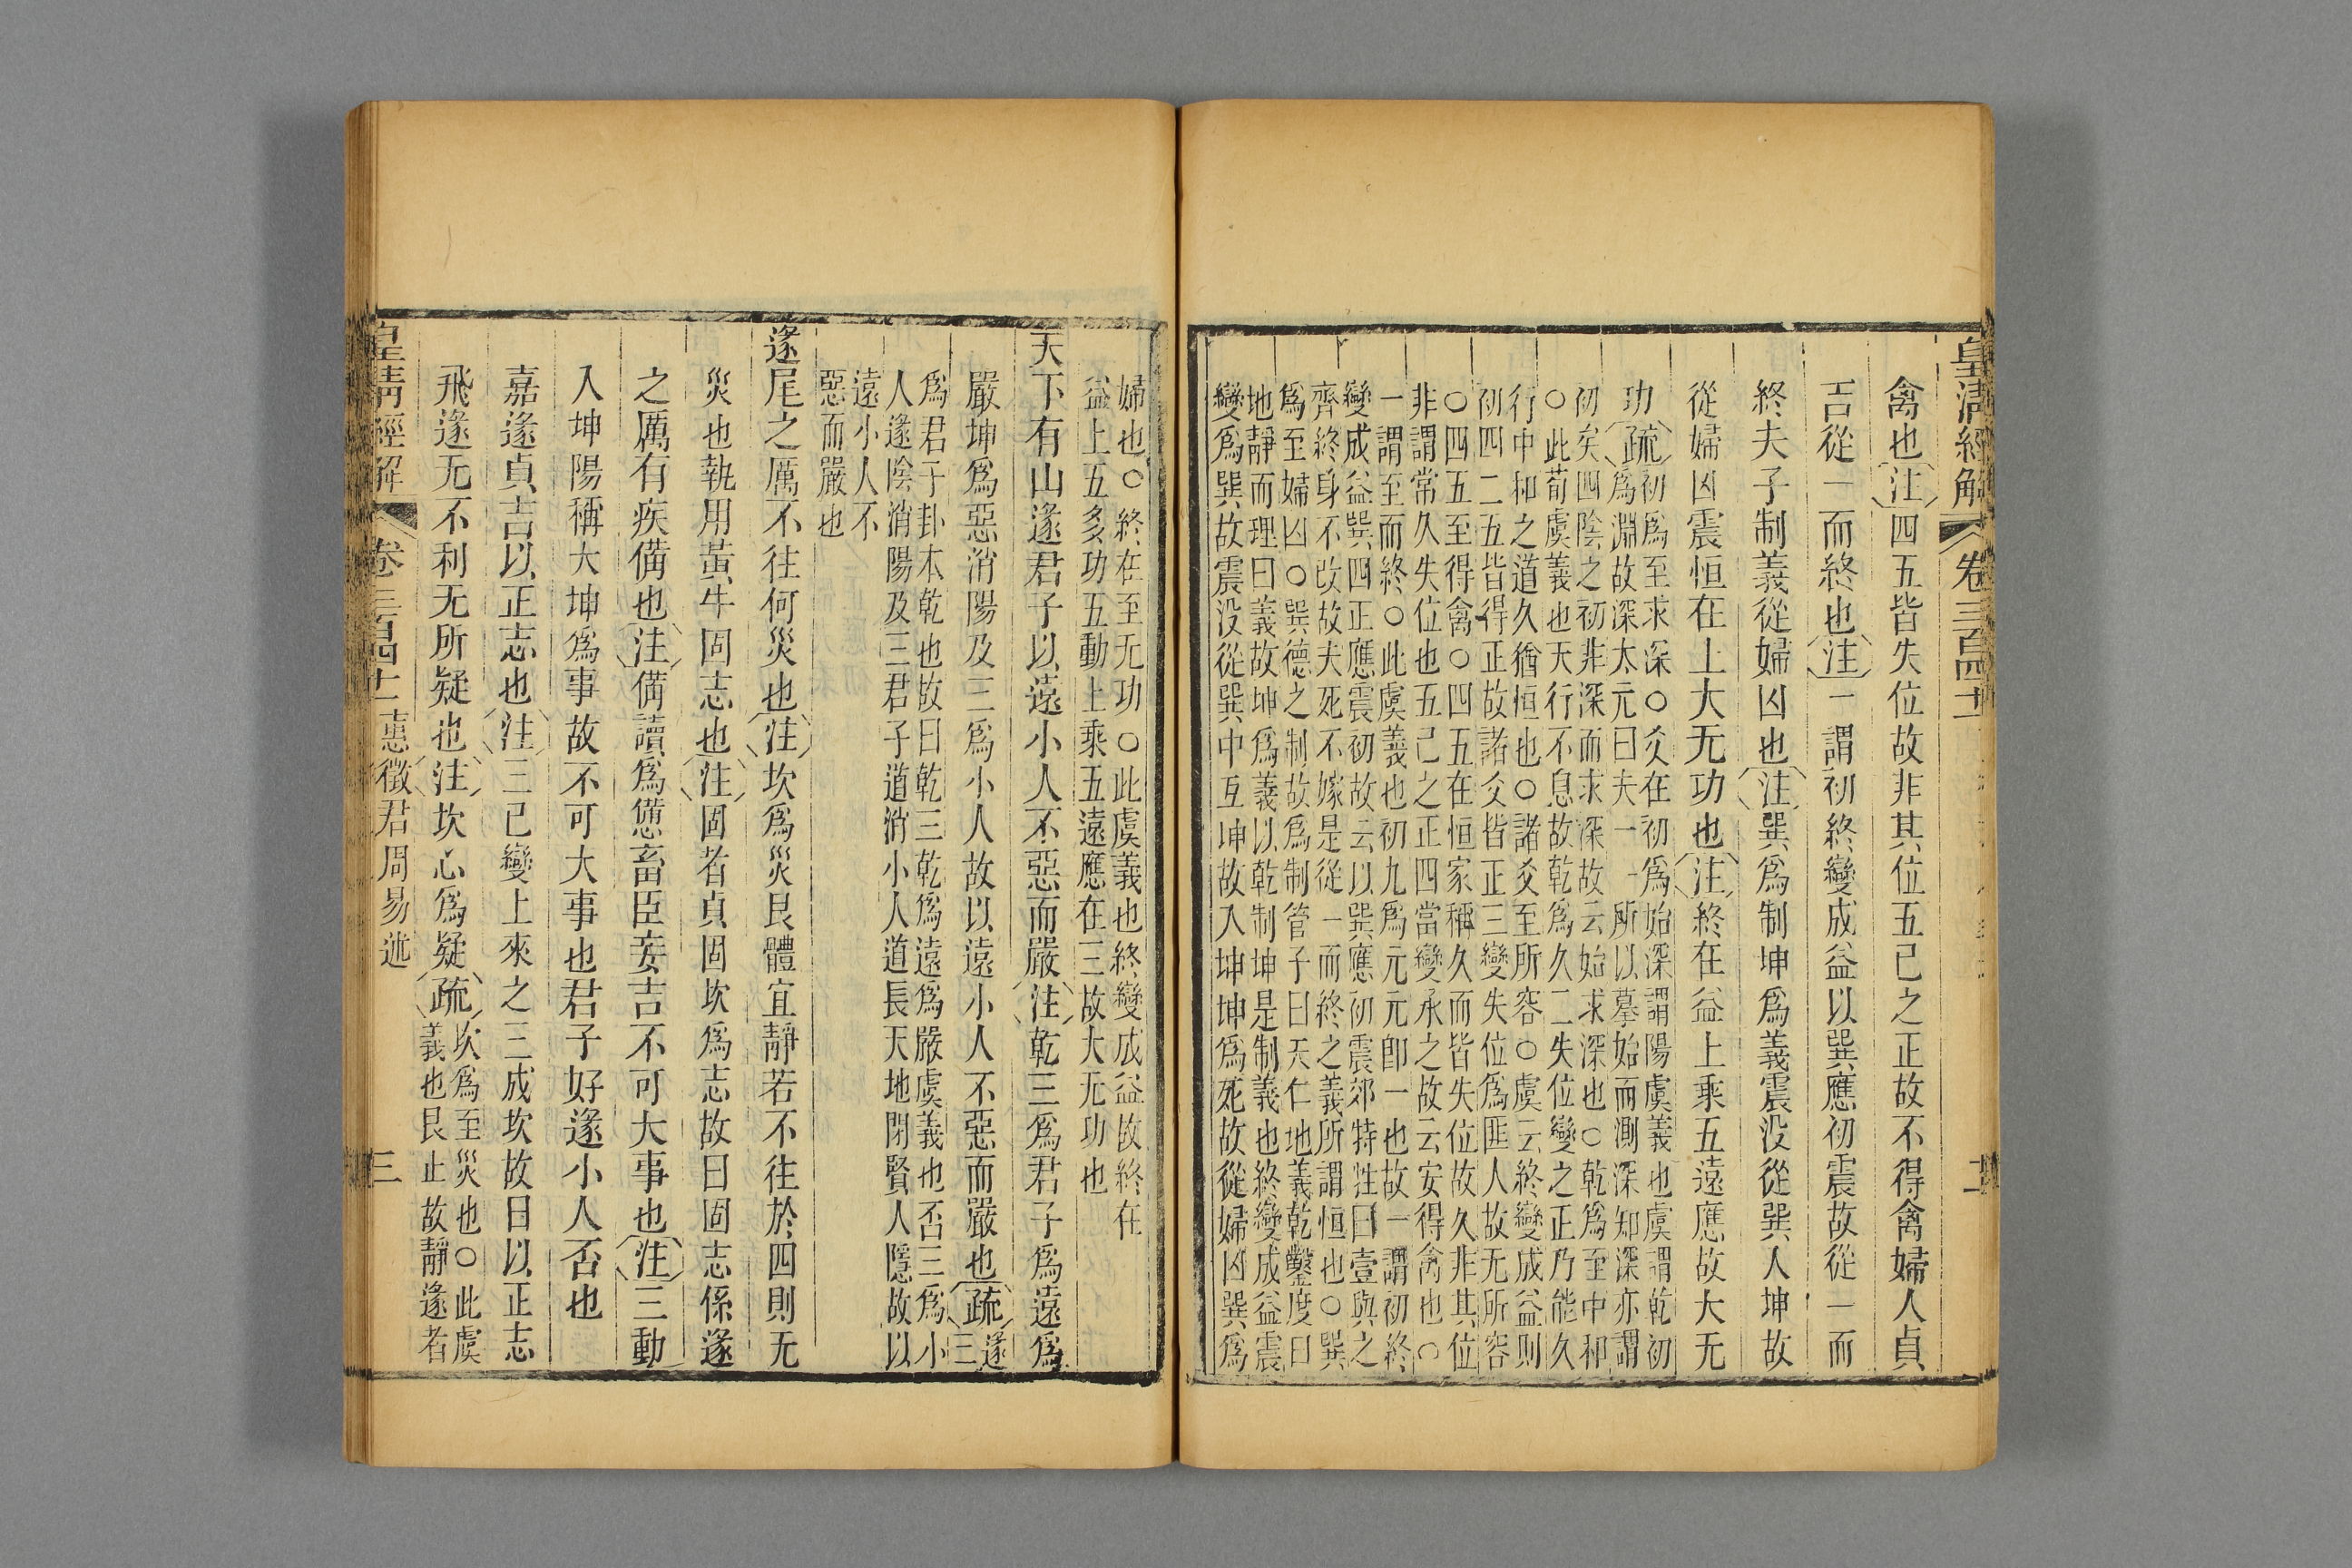 皇清經解
卷三百四十一
二
禽也注四五皆失位故非其位五已之正故不得禽婦人貞
吉從一而終也注一謂初終變成益以巽應初震故從一而
終夫子制義從婦凶也注巽爲制坤爲義震没從巽入坤故
從婦凶震恒在上大无功也注終在益上乘五遠應故大无
功疏
初爲至求深○爻在初爲始深謂陽虞義也虞謂乾初
爲淵故深太元曰夫一一所以摹始而測深知深亦謂
初矣四陰之初非深而求深故云始求深也○乾爲至中和
○此荀虞義也天行不息故乾爲久二失位變之正乃能久
行中和之道久猶恒也○諸爻至所容○虞云終變成益則
初四二五皆得正故諸爻皆正三變失位爲匪人故无所容
○四五至得禽○四五在恒家稱久而皆失位故久非其位
非謂常久失位也五已之正四當變承之故云安得禽也○
一謂至而終○此虞義也初九爲元元卽一也故一謂初終
變成益巽四正應震初故云以巽應初震郊特牲曰壹與之
齊終身不改故夫死不嫁是從一而終之義所謂恒也○巽
爲至婦凶○巽德之制故爲制管子曰天仁地義乾鑿度曰
地靜而理曰義故坤爲義以乾制坤是制義也終變成益震
變爲巽故震没從巽中互坤故入坤坤爲死故從婦凶巽爲
婦也○終在至无功○此虞義也終變成益故終在
益上五多功五動上乘五遠應在三故大无功也
天下有山遂君子以遠小人不惡而嚴注乾三爲君子爲遠爲
嚴坤爲惡消陽及三爲小人故以遠小人不惡而嚴也疏
遂三
爲君子卦本乾也故曰乾三乾爲遠爲嚴虞義也否三爲小
人遂陰消陽及三君子道消小人道長天地閉賢人隱故以
遠小人不
惡而嚴也
遂尾之厲不往何災也注坎爲災艮體宜靜若不往於四則无
災也執用黃牛固志也注固者貞固坎爲志故曰固志係遂
之厲有疾備也注備讀爲憊畜臣妾吉不可大事也注三動
入坤陽稱大坤爲事故不可大事也君子好遂小人否也
嘉遂貞吉以正志也注三已變上來之三成坎故曰以正志
飛遂无不利无所疑也注坎心爲疑疏
坎爲至災也○此虞
義也艮止故靜遂者
皇清經解
卷三百四十一
惠徵君周易述
三